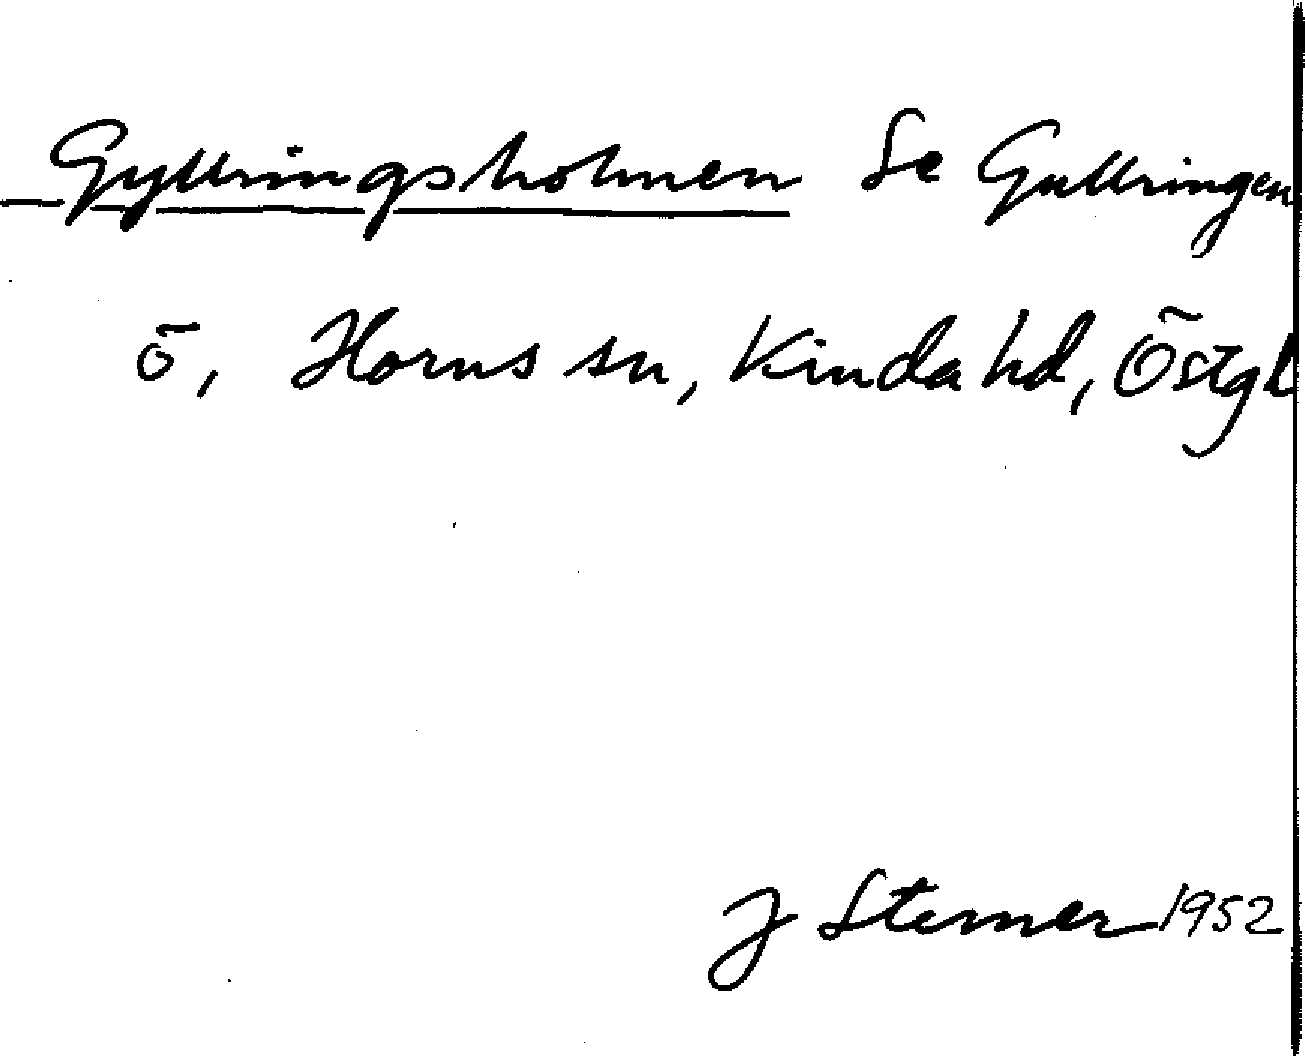 Gyllringsholmen Se Gullringen
ö, Horns sn, Kinda hd, Östgl
J Sterner 1952